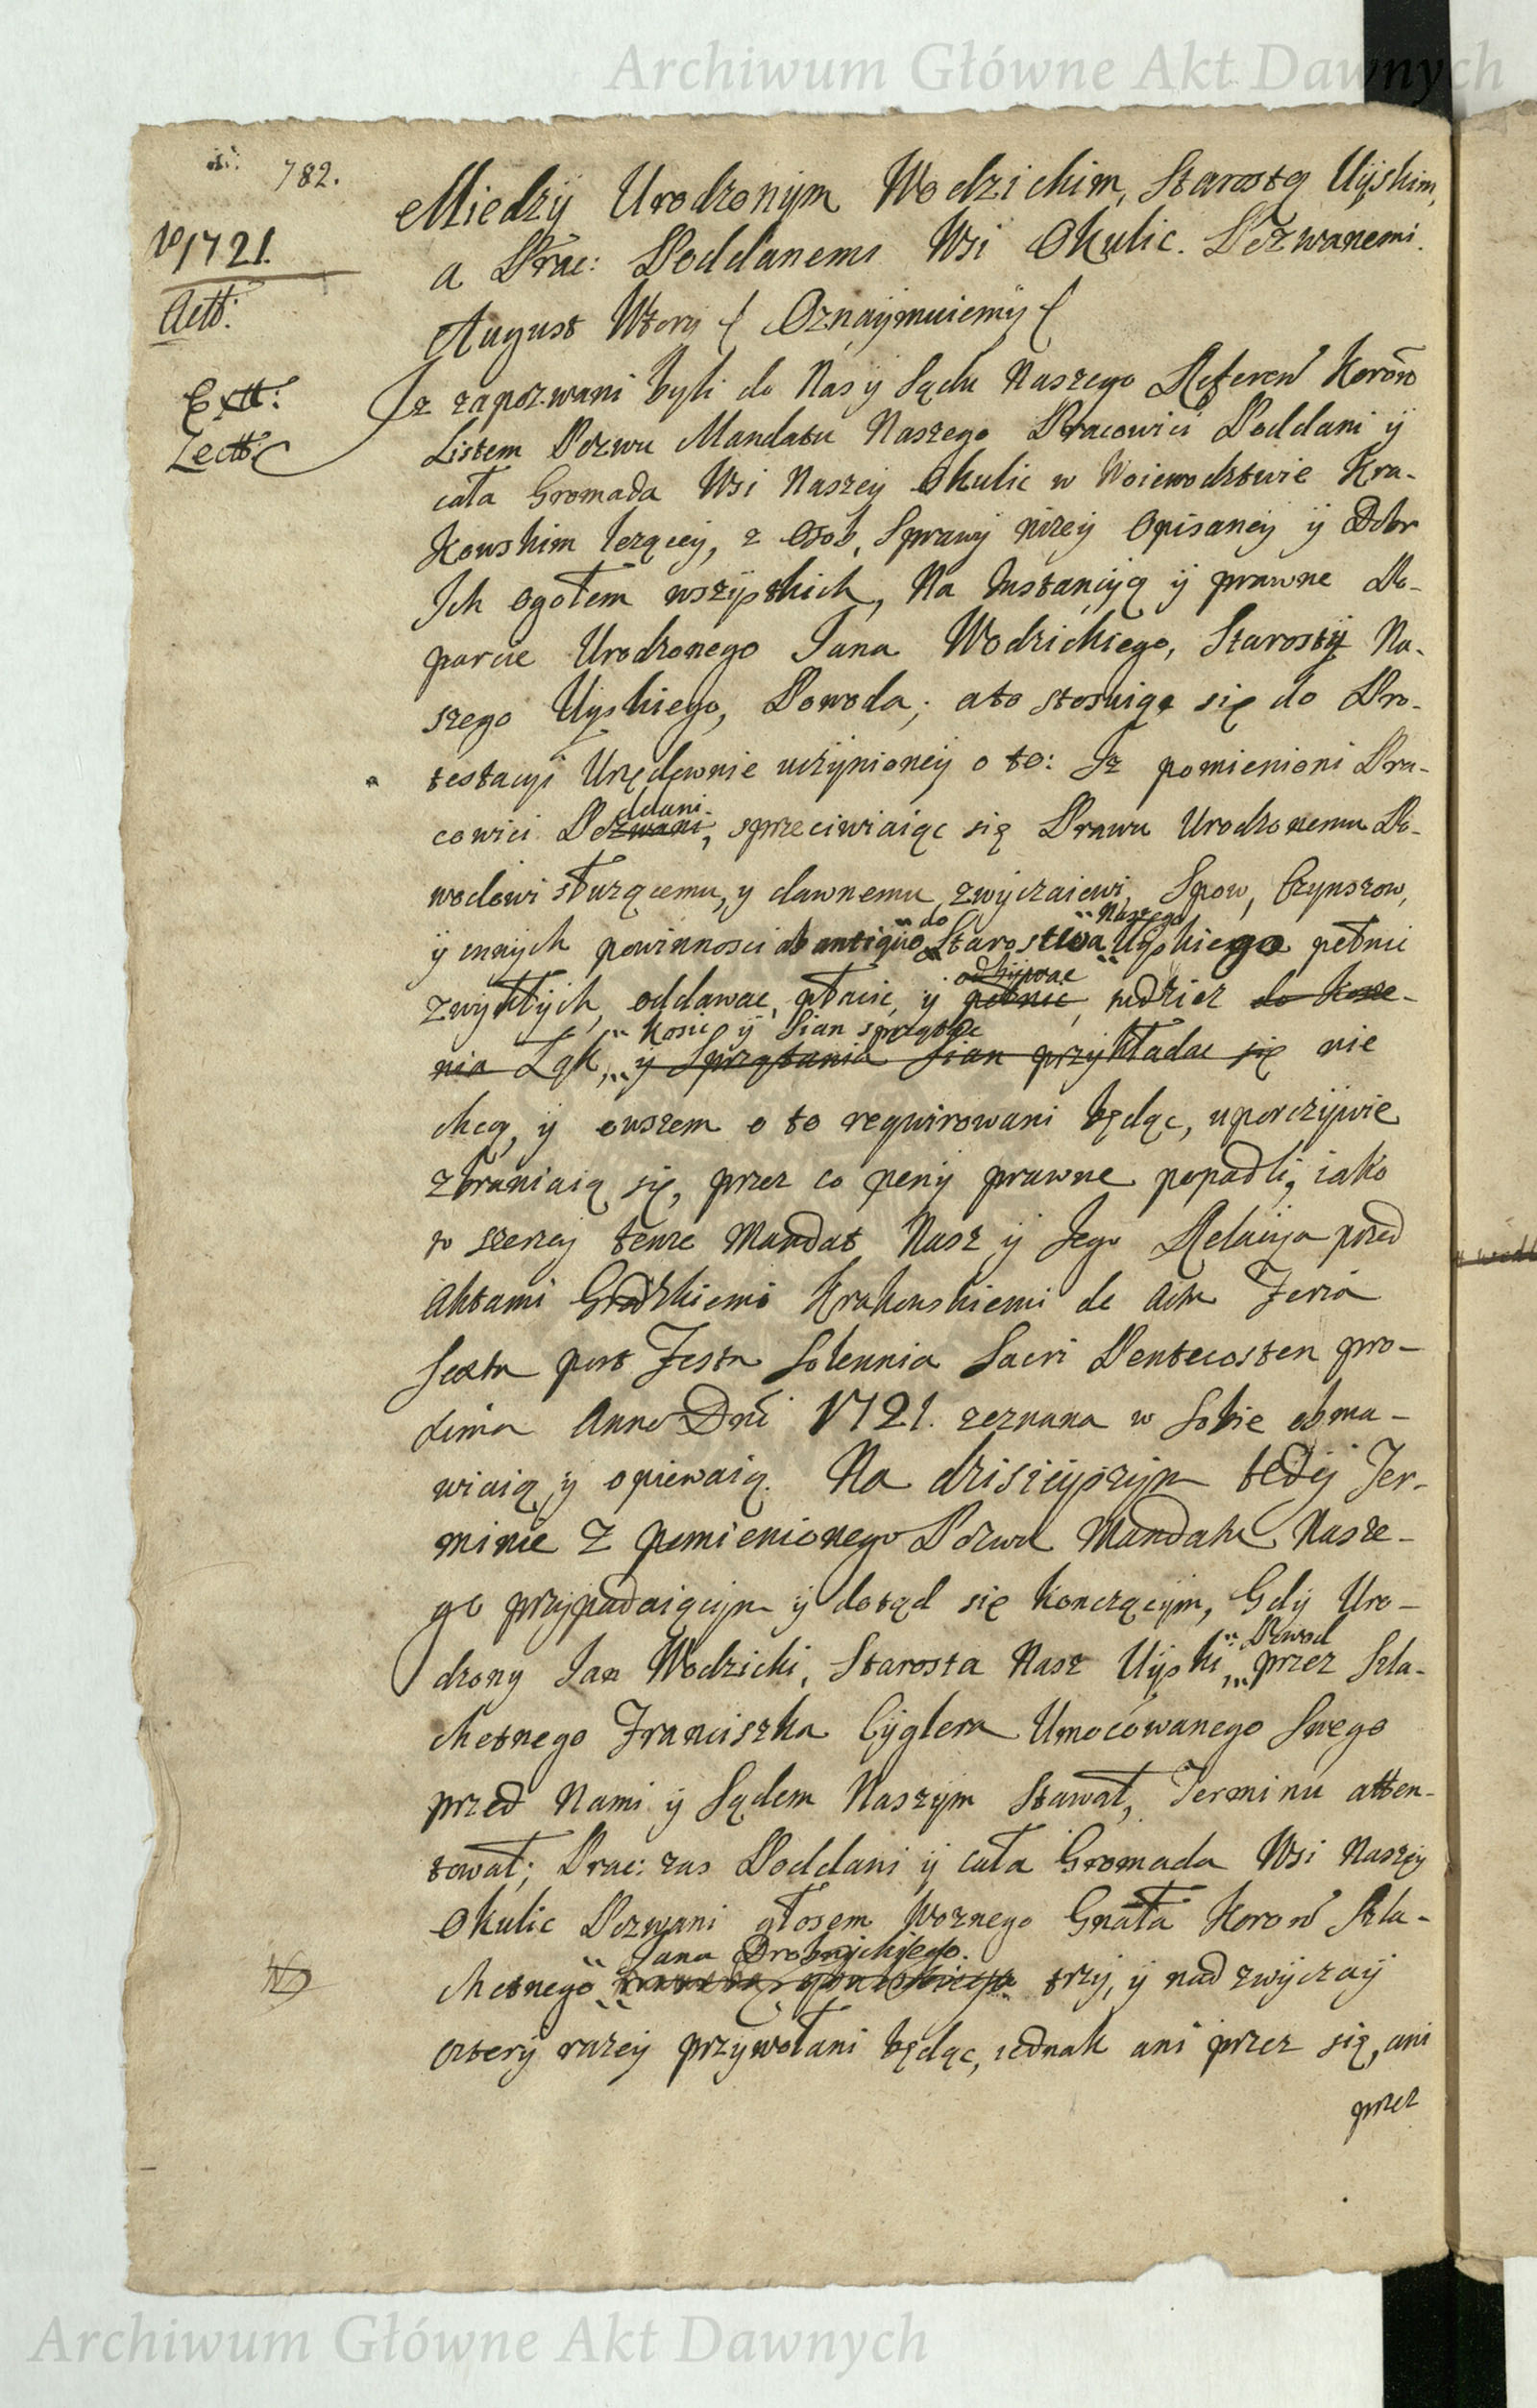 Archiwum Główne Akt Dawnych
782.
1721.
Actt:
Extt:
Lectt:
Miedzÿ Urodzonÿm Wodzickim, Starostą Uÿskim,
a Prac: Poddanemi Wsi Okulic. Pozwanemi.
August Wtory ( Oznaÿmuiemÿ (
Iz zapozwani byli do Nas ÿ Sądu Naszego Referen Koron
Listem Pozwu Mandatu Naszego Pracowici Poddani ÿ
cała Gromada Wsi Naszeÿ Okulic w Woiewodztwie Kra-
kowskim leząceÿ, z Osob, Sprawÿ nizeÿ Opisaneÿ ÿ Dobr
Ich ogołem wszÿstkich, Na Instancÿą ÿ prawne Po-
parcie Urodzonego Jana Wodzickiego, Starostÿ Na-
szego Uÿskiego, Powoda; ato stosuiąc się do Pro-
testacÿi Urzędownie uczÿnioneÿ o to: Iz pomienioni Pra-
cowici Pozwani, ddani sprzeciwiaiąc się Prawu Urodzonemu Po-
wodowi słuzącemu, y dawnemu zwÿczaiewi, Spow, Czynszow,
ÿ innych powinnosci ab antiquo do Starostwa Naszego Uÿskiego pełnic
zwÿkłÿch, oddawac, płacic, ÿ pełnic, odbÿwac tudziez do Kosze-
nia Łąk, ÿ Sprzątania Sian przykładac się nie
Kosic ÿ Sian sprzątac
chcą, ÿ owszem o to requirowani będąc, uporczÿwie
zbraniaią się, przez co penÿ prawne popadli, iako
to szerzeÿ tenze Mandat Nasz ÿ Jego Relacÿa przed
Aktami Grodzkiemi Krakowskiemi de Actu Feria
Sexta post Festa Solennia Sacri Pentecosten pro-
xima Anno Dni 1721. zeznana w Sobie obma-
wiaią ÿ opiewaią. Na dzisieÿszÿm tedÿ Ter-
minie z pomienionego Pozwu Mandatu Nasze-
go przÿpadaiącÿm ÿ dotąd się konczącÿm, Gdÿ Uro-
dzony Jan Wodzicki, Starosta Nasz Uÿski, Powod przez Szla-
chetnego Franciszka Cÿglera Umocowanego Swego
przed Nami ÿ Sądem Naszÿm stawał, Terminu atten-
tował; Prac: zas Poddani ÿ cała Gromada Wsi Naszeÿ
Okulic Pozwani głosem Woznego Gnała Koron Szla-
chetnego Jana Drobnÿckiego. trzÿ, ÿ nad zwÿczaÿ
czterÿ razeÿ przÿwołani będąc, iednak ani przez się, ani
przez
Archiwum Główne Akt Dawnych